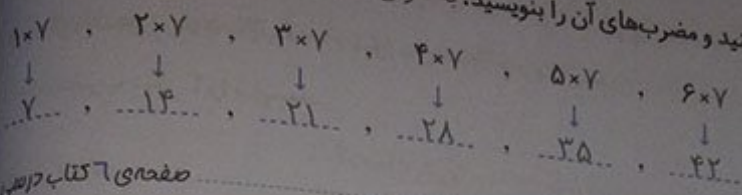 نید و مضرب‌های آن را بنویسید.
۱×۷ , ۲×۷ , ۳×۷ , ۴×۷ , ۵×۷ , ۶×۷
↓ ↓ ↓ ↓ ↓ ↓
...۷... , ...۱۴... , ...۲۱... , ...۲۸... , ...۳۵... , ...۴۲...
صفحه‌ی ٦ کتاب درسی